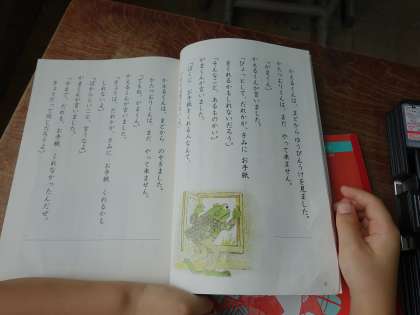 かえるくんは、まどからゆうびんうけを見ました。
かたつむりくんは、まだ やって来ません。
「がまくん。」
かえるくんが言いました。
「ひょっとして、だれかが、きみに お手紙
をくれるかもしれないだろう。」
「そんなこと、あるものかい。」
がまくんが言いました。
「ぼくに お手紙をくれる人なんて、
かえるくんは、まどから のぞきました。
かたつむりくんは、まだ やって来ません。
「でもね、がまくん。」
かえるくんが言いました。
「きょうは、だれかが、きみに お手紙 くれるかも
しれないよ。」
「ばからしいこと、言うなよ。」
がまくんが言いました。
「今まで、だれも、お手紙 くれなかったんだぜ。
きょうだって同じだろうよ。」